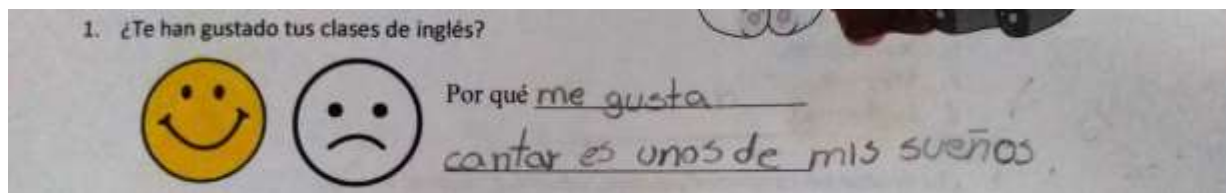 1. ¿Te han gustado tus clases de inglés?
Por qué me gusta
cantar es unos de mis sueños